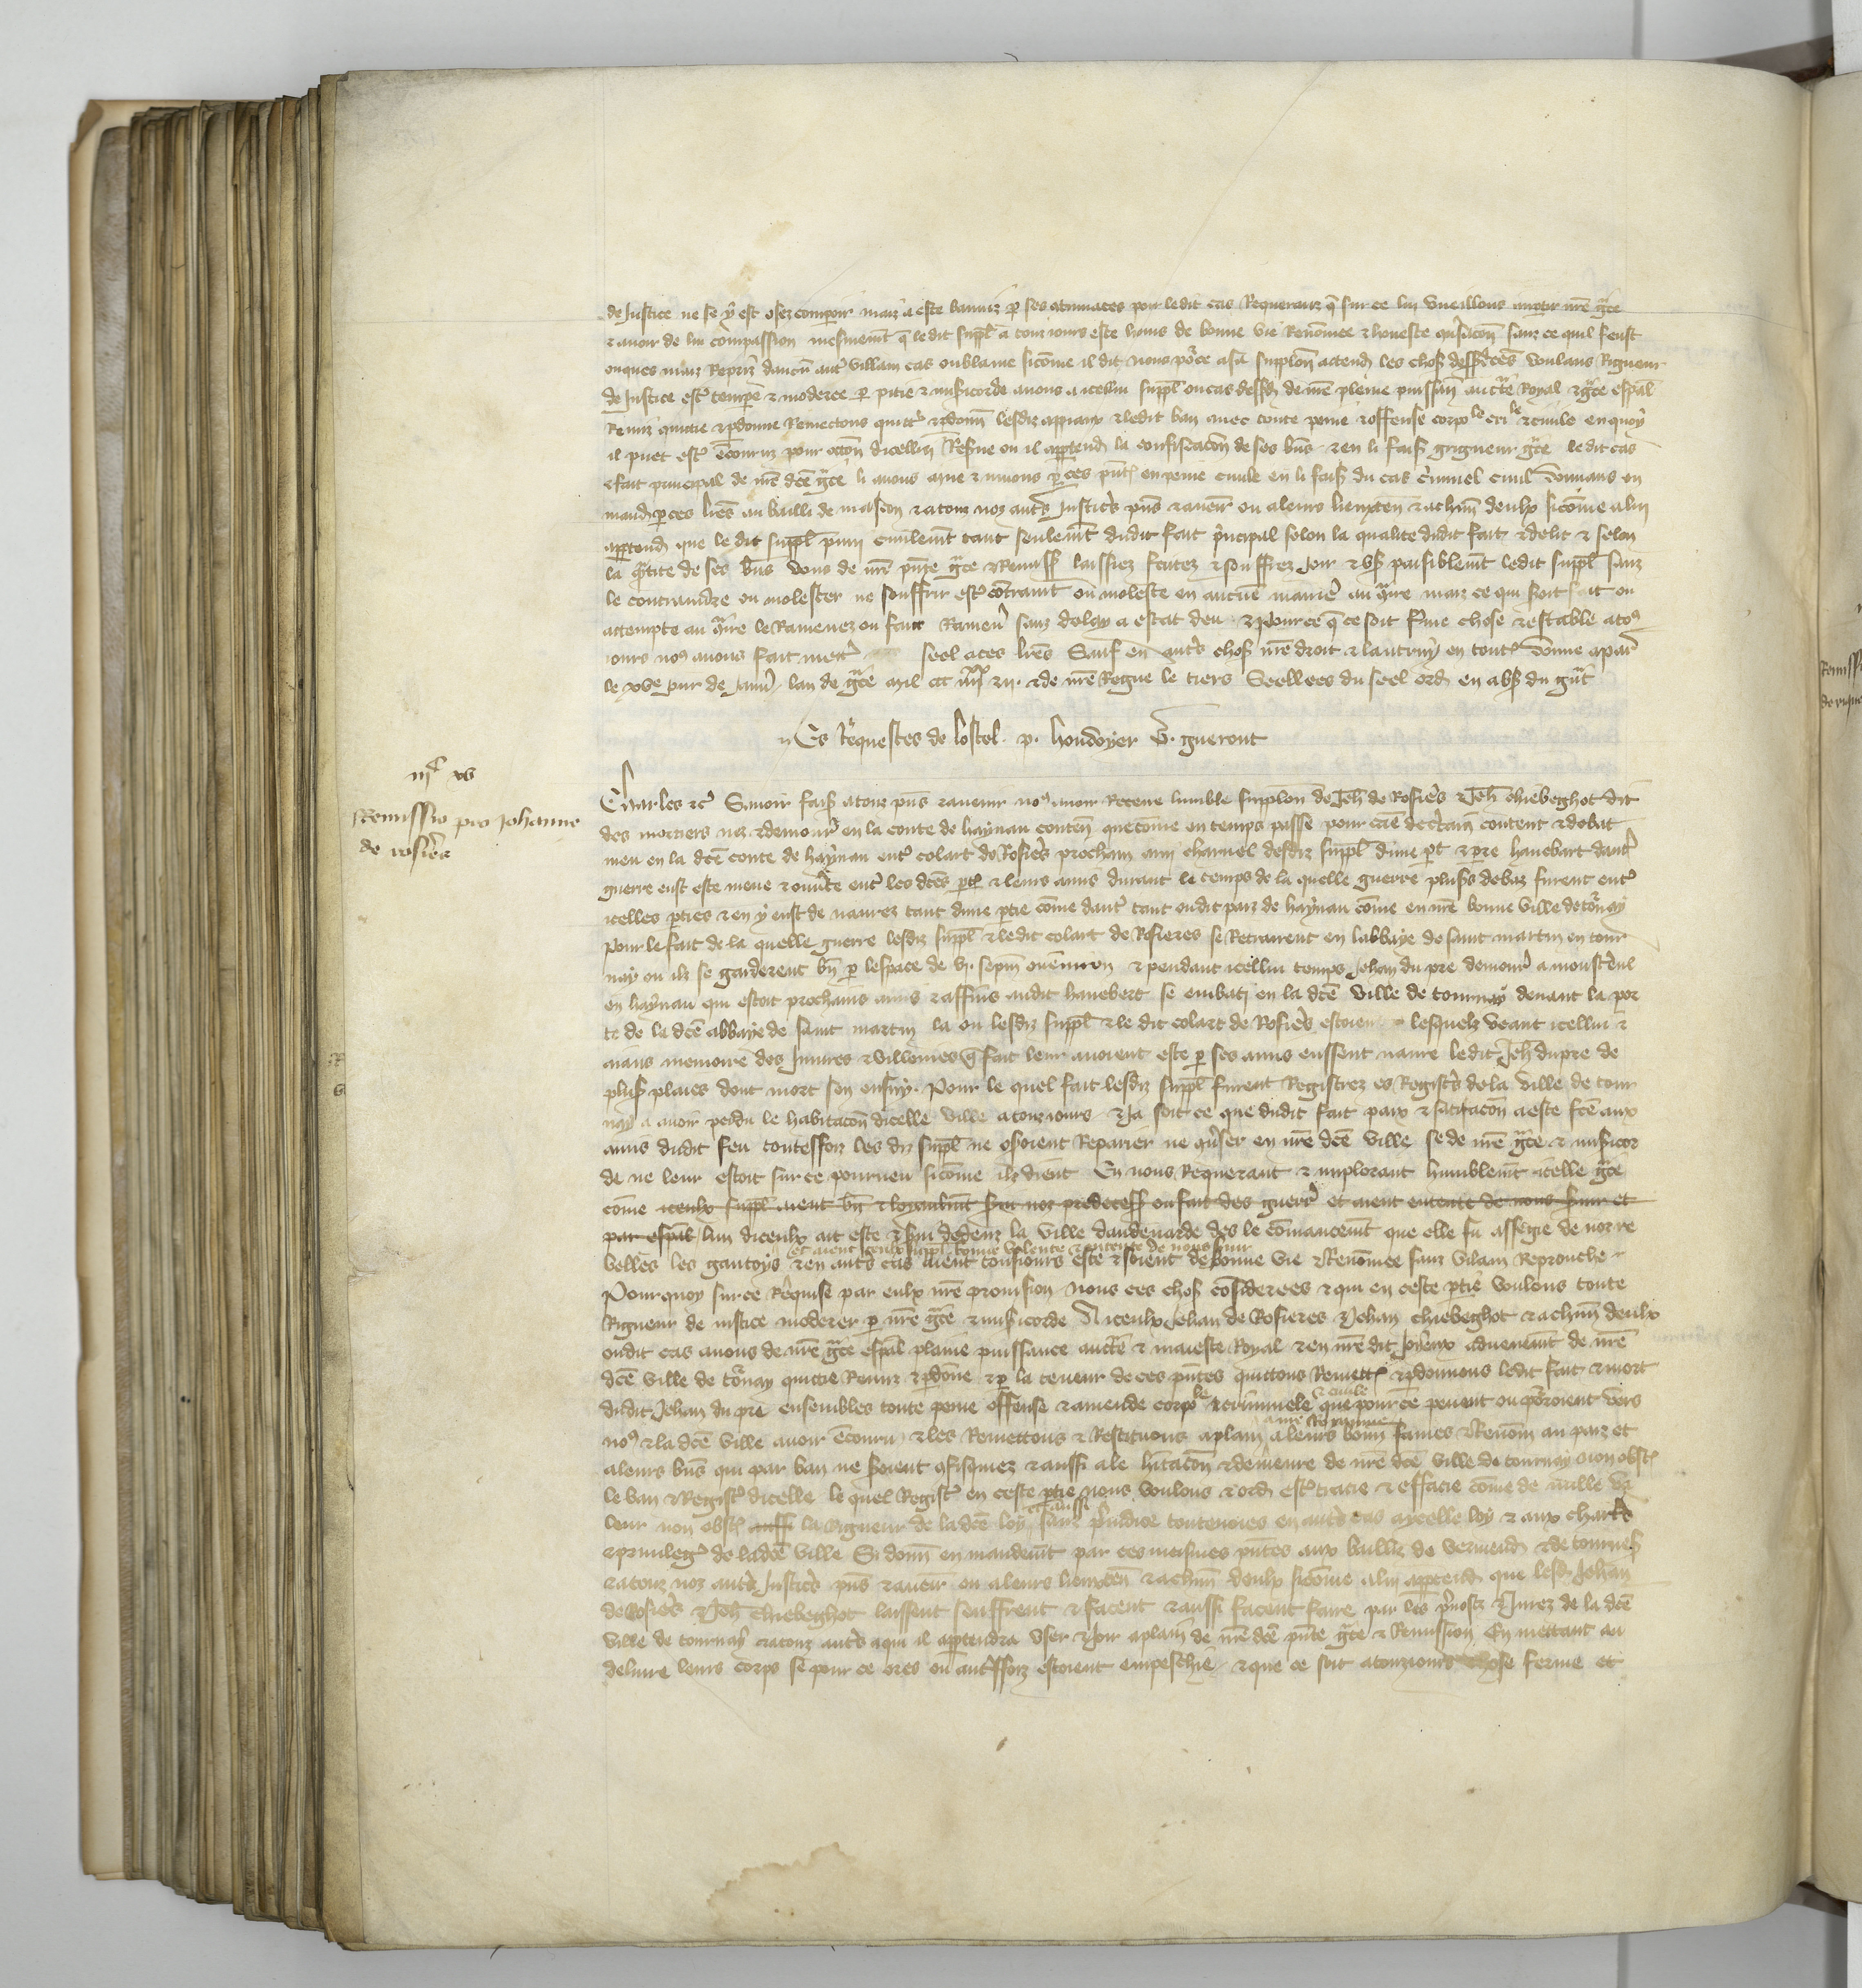 de Justice ne se y est osez comparoir mais a este banniz p ses contumaces pour ledit cas Requerant q sur ce lui vueillons impartir nre grace
et avoir de lui compassion mesmemt q ledit suppl a touz iours este homs de bonne vie Renommee et honeste conversacon sanz ce quil feust
onques mais Repris daucun autre villain cas ou blasme sicome il dit nous pour ce a sa supplicon attendu les choses dessusdces voulans Rigueur
de Justice estre tempere et moderee p pitie et misericorde avons a icellui suppl ou cas dessusd de nre pleine puissance auctorite Royal et grace espal
Remis quictie et pdonne Remectons quictons et pdonnons lesdiz appeaux et ledit ban avec toute peine et offense corporele criminele et civile en quoy
il puet estre encouruz pour occon dicellui Reserve ou il appartendra la confiscacon de ses biens et en li faisant greigneur grace ledit cas
et fait principal de nre dce grace li avons mue et muons p ces pntes en peine civile en li faisant du cas criminel civil donnans en
mandemt p ces lres au bailli de mascon et a touz noz autres Justiciers pns et avenir ou a leurs lieuxten et a chascun deulx sicome a lui
appartendra que le dit suppl puni civilemt tant seulemt dudit fait principal selon la qualite dudit fait et delit et selon
la quantite de ses biens vous de nre pnte grace et Remission laissiez faciez et souffrez Joir et user paisiblemt ledit suppl sanz
le contraindre ou molester ne souffrir estre contraint ou moleste en aucune maniere au contraire mais ce qui soit fait ou
attempte au contraire le Ramenez ou faites Ramener sanz delay a estat deu Et pour ce q ce soit ferme chose et estable a touz
iours nous avons fait mettre seel a ces lres Sauf en autres choses nre droit et lautruy en toutes donne a paris
le xve jour de Janv lan de grace mil ccc iiiixx et ii. et de nre Regne le tiers Seellees du seel ord en absence du grant
Es Requestes de lostel. p. houdoyer G. gueront
iiic xv
Remissio pro Johanne
de rosieres
Charles etc Savoir faisons a touz pns et avenir nous avoir Receue lumble supplicon de Jeh de Rosieres et Jeh chiebeghot dit
des morniers nez et demourans en la conte de haynau contenant que come ou temps passe pour cause de certain content et debat
meu en la dce conte de haynau entre colart de Rosieres prochain ami charnel desdiz suppl dune part et pre hanebart dautre
guerre eust este meue et ouverte entre les dces parties et leurs amis durant le temps de la quelle guerre pluseurs debaz furent entre
icelles parties et en y eust de navrez tant dune partie come dautre tant oudit pais de haynau come en nre bonne ville de tournay
Pour le fait de la quelle guerre lesdiz suppl et ledit colart de Rosieres se Retrairent en labbaye de saint martin en tour
nay ou ilz se garderent bn p lespace de vi. sepm ou environ et pendant icellui temps Jehan du pre demourant a monsteruel
en haynau qui estoit prochains amis et affins audit hanebert se embati en la dce ville de tournay devant la por
te de la dce abbaye de saint martin la ou lesdiz suppl et le dit colart de Rosieres estoient lesquelz veant icellui et
aians memoire des Iniures et villenies q fait leur avoient este p ses amis eussent navre ledit Jeh du pre de
pluseurs plaies dont mort sen ensuy. Pour le quel fait lesdiz suppl furent Registrez es Registres de la ville de tour
nay a avoir perdu le habitacon dicelle ville a touz iours et Ja soit ce que dudit fait paix et satisfacon a este fce aux
amis dudit feu toutesfoiz les diz suppl ne osoient Repairier ne converser en nre dce ville se de nre grace et misericor
de ne leur estoit sur ce pourveu sicome ilz dient En nous Requerant et implorant humblemt icelle grace
come iceulx suppl aient bn et loyaulmt servi noz predecess ou fait des guerres et aient entente de nous servir et
par espal lun diceulx ait este et servi dedenz la ville daudenarde des le comancemt que elle fu assegie de noz re
belles les gantoys et aient iceulx suppl bonne volente et entente de nous servir et en autres cas aient tousiours este et soient de bonne vie et Renommee sanz vilain Reprouche
Pour quoy sur ce Requise par eulx nre provision Nous ces choses considerees et qui en ceste partie voulons toute
Rigueur de iustice moderer p nre grace et misericorde A iceulx Jehan de Rosieres et Jehan chiebeghot et a chascun deulx
oudit cas avons de nre grace espal plaine puissance auctorite et maieste Royal et en nre dit Joyeux advenemt de nre
dce ville de tournay quictie Remis et pdonne et p la teneur de ces pntes quictons Remettons et pdonnons ledit fait et mort
dudit Jehan du pre ensembles toute peine offense et amende corporele et criminele et civile que pour ce pevent ou pourroient vers
nous et la dce ville avoir encouru et les Remettons et Restituons a plain a nre Royaume a leurs bonnes fames et Renom au pais et
a leurs biens qui par ban ne soient confisquiez et aussi a le habitacon et demeure de nre dce ville de tournay non obst
le ban et Registre dicelle le quel Registre en ceste partie nous voulons et ord estre tracie et effacie come de nulle va
leur non obst aussi la Rigueur de la dce loy et aussi sanz preiudice toutevoies en autres cas a ycelle loy et aux chartres
et privileges de la dce ville Si donnons en mandemt par ces meismes pntes aux bailliz de vermendois et de tournes
et a touz noz autres Justiciers pns et avenir ou a leurs lieuxten et a chascun deulx sicome a lui appartendra que lesd Jehan
de Rosieres et Jeh chiebeghot laissent seuffrent et facent et aussi facent faire par les prevostz et Jurez de la dce
ville de tournay et a touz autres a qui il appartendra user et Joir a plain de nre dce pnte grace et Remission En mettant au
delivre leurs corps se pour ce ores ou autresfoiz estoient empeschie et que ce soit a touziours chose ferme et